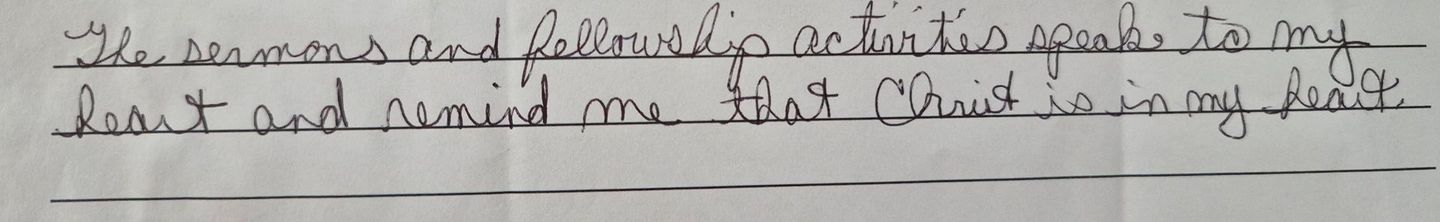 The sermons and fellowship activities speaks to my
heart and remind me that Christ is in my heart.